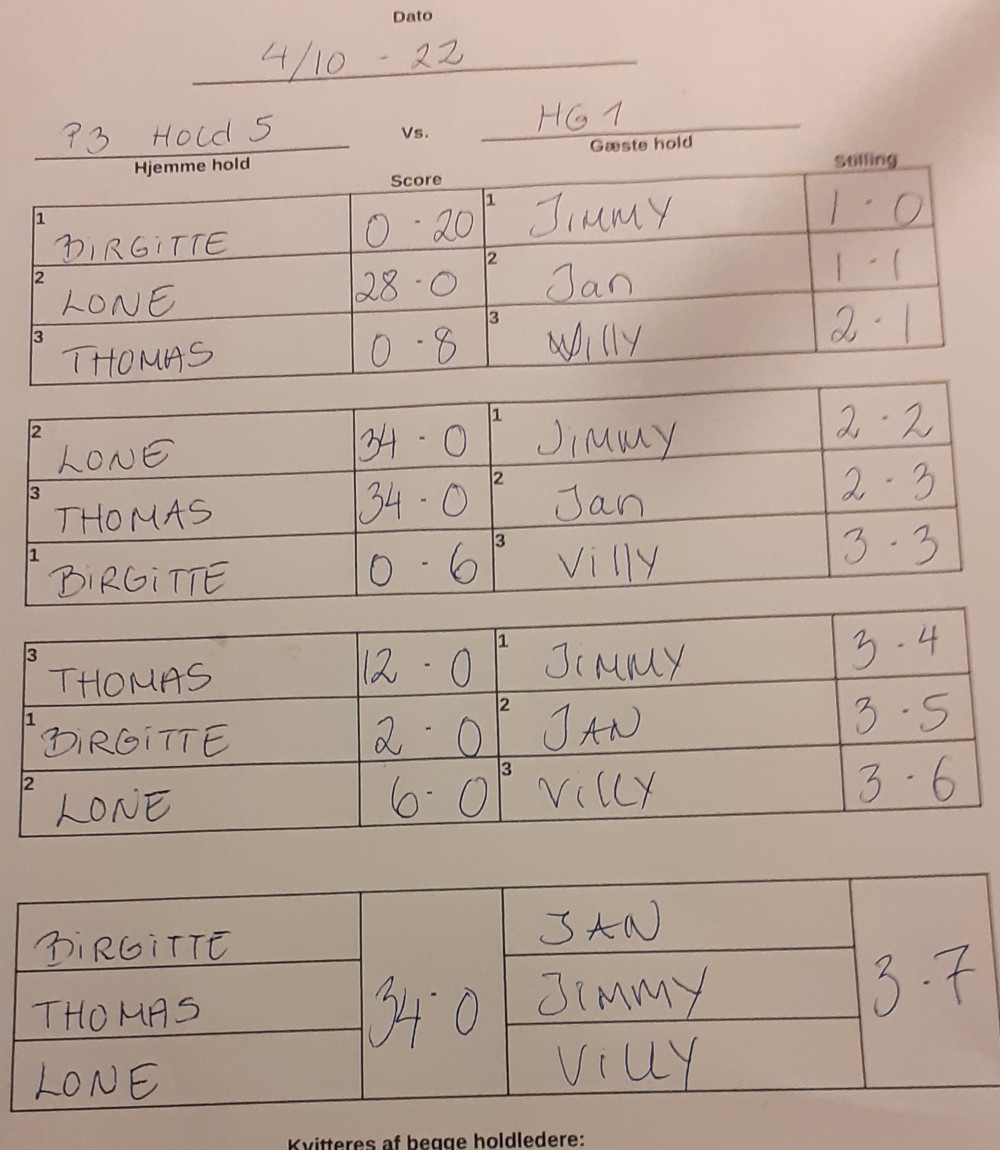 Dato
4/10 - 22
P3 Hold 5 Vs. HG 1
Hjemme hold Gæste hold
Score Stilling
1 BIRGITTE 0 - 20 1 JIMMY 1 - 0
2 LONE 28 - 0 2 Jan 1 - 1
3 THOMAS 0 - 8 3 Willy 2 - 1
2 LONE 34 - 0 1 JIMMY 2 - 2
3 THOMAS 34 - 0 2 Jan 2 - 3
1 BIRGITTE 0 - 6 3 Villy 3 - 3
3 THOMAS 12 - 0 1 JIMMY 3 - 4
1 BIRGITTE 2 - 0 2 JAN 3 - 5
2 LONE 6 - 0 3 VILLY 3 - 6
BIRGITTE JAN
THOMAS 34 - 0 JIMMY 3 - 7
LONE VILLY
Kvitteres af begge holdledere: